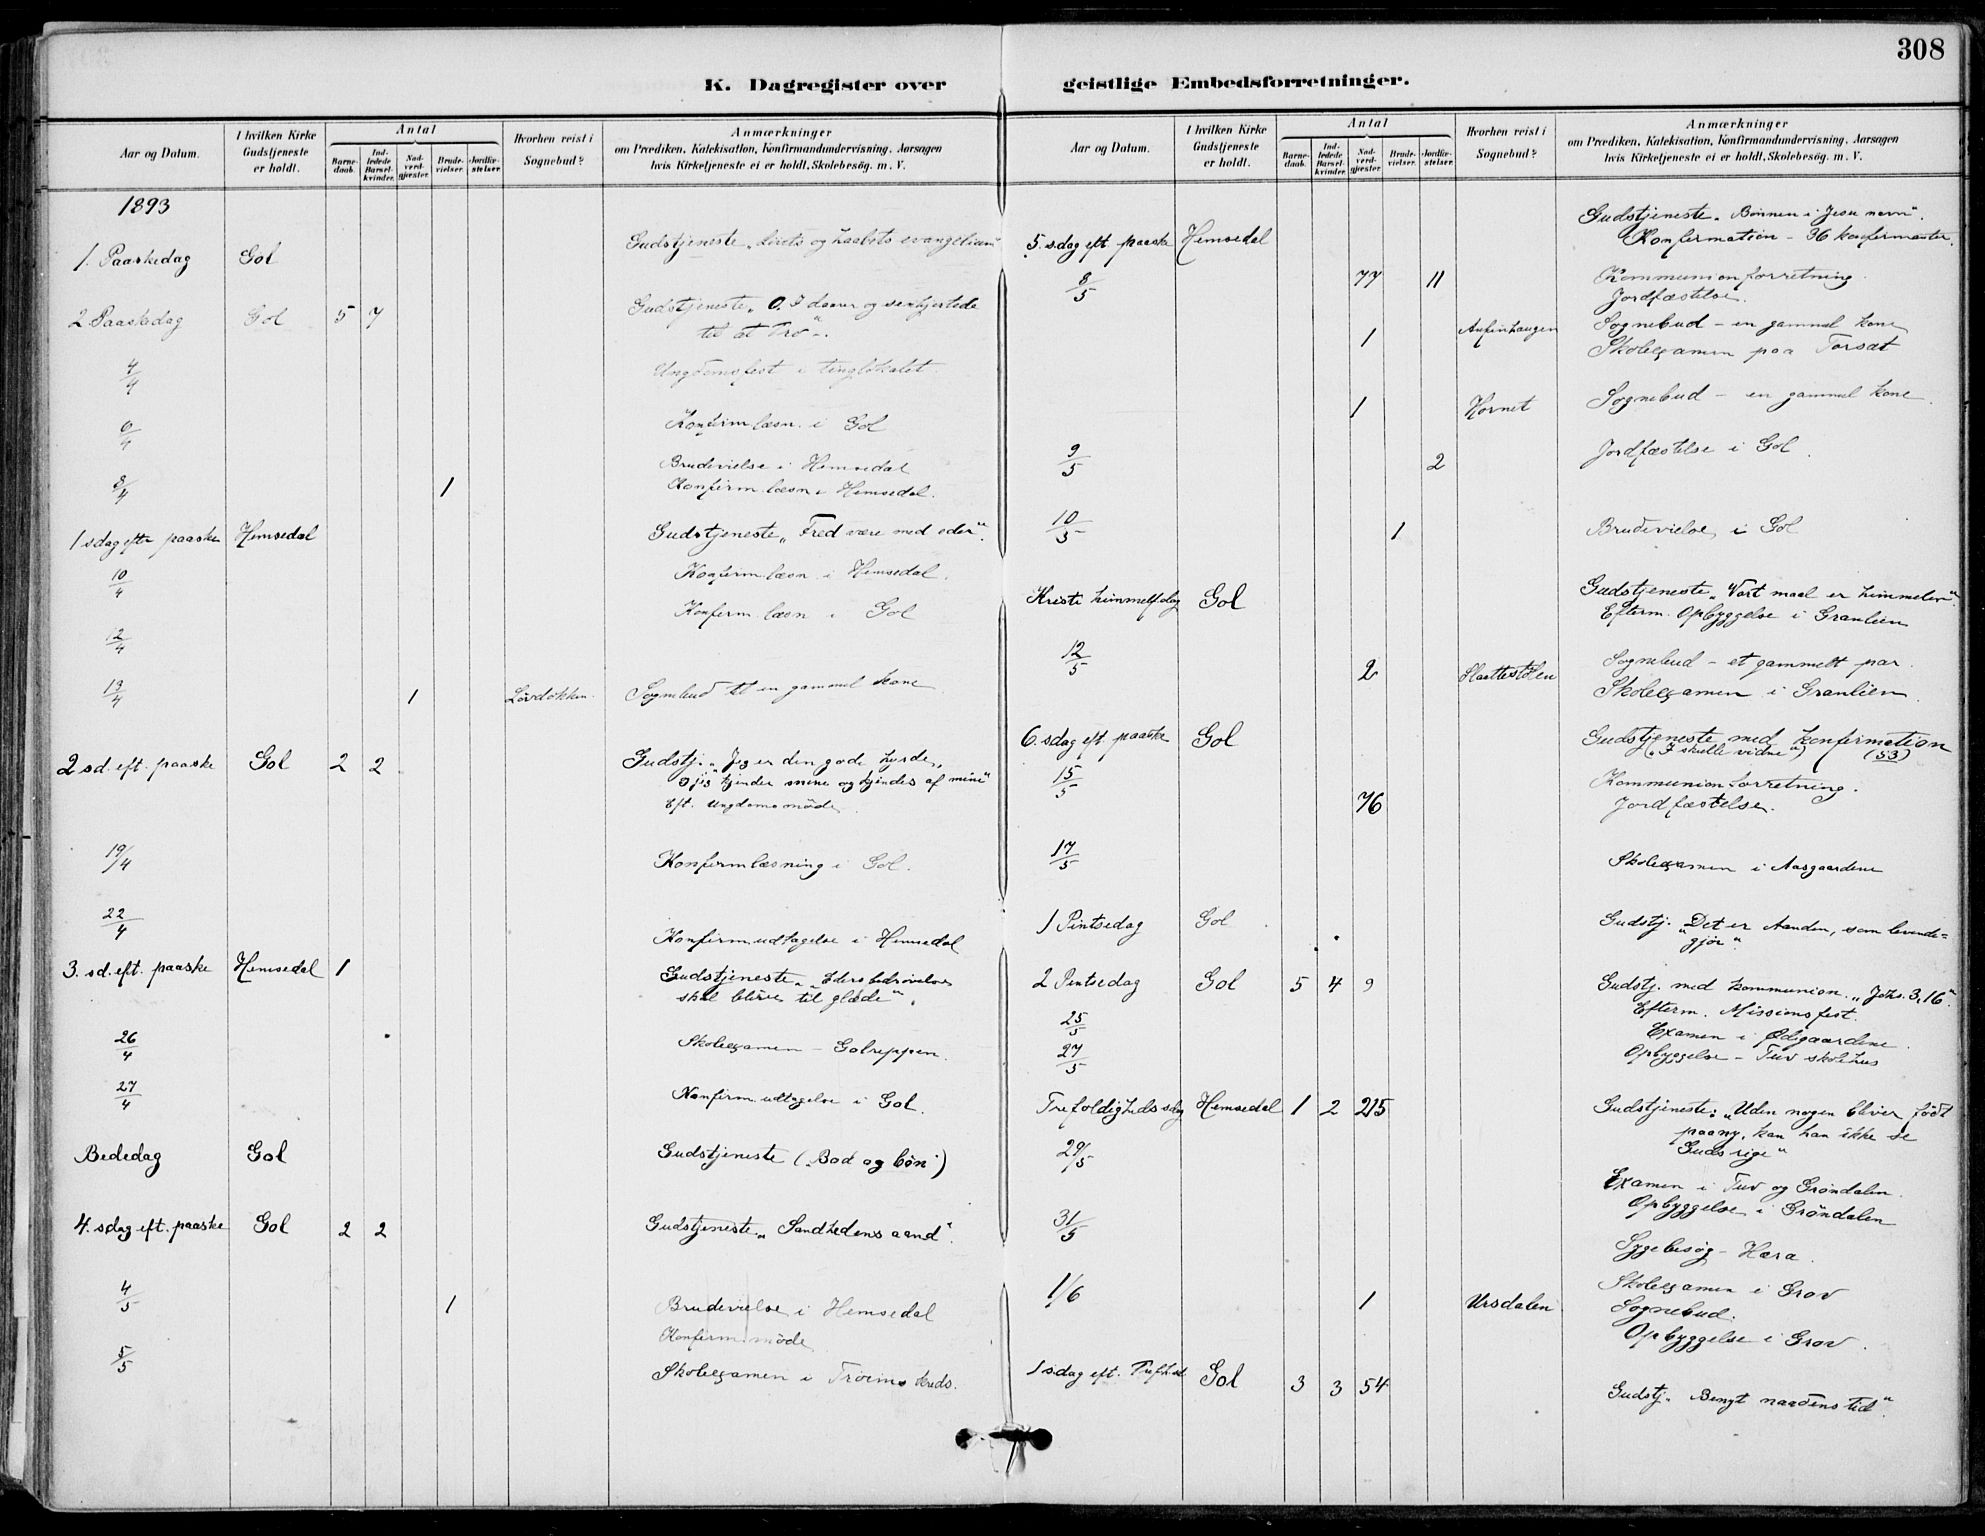 308
K. Dagregister over geistlige Embedsforretninger.
Aar og Datum.
I hvilken Kirke Gudstjeneste er holdt.
Antal
Barne-daab.
Ind-ledede Barsel-kvinder.
Nad-verd-gjæster.
Brude-vielser.
Jordfæ-stelser.
Hvorhen reist i Sognebud?
Anmærkninger
om Prædiken, Katekisation, Konfirmandundervisning, Aarsagen
hvis Kirketjeneste ei er holdt, Skolebesög. m. V.
1893
1. Paaskedag Gol Gudstjeneste „Livets og haabets evangelium"
2 Paaskedag Gol 5 7 Gudstjeneste „O, I daarer og senhjertede
til at Tro".
4/4 Ungdomsfest i tinglokalet.
6/4 Konfirm. læsn. i Gol
Brudevielse i Hemsedal
8/4 1 Konfirm. læsn. i Hemsedal.
1 sdag efter paaske Hemsedal Gudstjeneste „Fred være med eder".
10/4 Konfirm. læsn. i Hemsedal.
12/4 Konfirm. læsn i Gol
13/4 1 Sognebud til en gammel kone
2 sd. eft. paaske Gol 2 2 Gudstj. „Jeg er den gode hyrde,
og jeg kjender mine og kjendes af mine"
Eft. Ungdomsmöde.
19/4 Konfirmlæsning i Gol.
22/4 Konfirm. udtagelse i Hemsedal
3. sd. eft. paaske Hemsedal 1 Gudstjeneste „Eders bedrövelse
skal blive til glæde".
26/4 Skoleexamen – Golreppen.
27/4 Konfirm. udtagelse i Gol.
Bededag Gol Gudstjeneste („Bod og bön")
4. sdag eft. paaske Gol 2 2 Gudstjeneste „Sandhedens aand".
4/5 1 Brudevielse i Hemsedal
Konfirm. möde
5/5 Skoleexamen i Tröims kreds.
Aar og Datum.
I hvilken Kirke Gudstjeneste er holdt.
Antal
Barne-daab.
Ind-ledede Barsel-kvinder.
Nad-verd-gjæster.
Brude-vielser.
Jordfæ-stelser.
Hvorhen reist i Sognebud?
Anmærkninger
om Prædiken, Katekisation, Konfirmandundervisning, Aarsagen
hvis Kirketjeneste ei er holdt, Skolebesög. m. V.
5. sdag eft. paaske Hemsedal Gudstjeneste „Bönnen i Jesu navn".
Konfirmation – 36 konfirmanter.
8/5 77 11 Kommunionforretning.
Jordfæstelse.
1 Sognebud – en gammel kone
Skoleexamen paa Torsæt
1 Sognebud – en gammel kone.
9/5 2 Jordfæstelse i Gol.
10/5 1 Brudevielse i Gol
Kristi himmelfdag Gol Gudstjeneste „Vort maal er himmelen".
Efterm. Opbyggelse i Granlien
12/5 2 Slaattestölen Sognebud – et gammelt par.
Skoleexamen i Granlien.
6. sdag eft. paaske Gol Gudstjeneste med konfirmation
(„I skulle vidne") (53)
15/5 76 Kommunionforretning.
Jordfæstelse.
17/5 Skoleexamen i Aasgaardene
1 Pintsedag Gol Gudstj. „Det er Aanden, som levende-
gjör"
2 Pintsedag Gol 5 4 9 Gudstj. med kommunion. „Johs. 3, 16".
Efterm. Missionsfest.
25/5 Examen i Ødegaardene.
27/5 Opbyggelse – Tuv skolehus
Trefoldighedssdag Hemsedal 1 2 215 Gudstjeneste: „Uden nogen bliver född
paany, kan han ikke se
Guds rige"
29/5 Examen i Tuv og Gröndalen.
Opbyggelse i Gröndalen
31/5 Sygebesög – Hæra.
Skoleexamen i Grov
1/6 1 Ursdalen Sognebud.
Opbyggelse i Grov.
1 sdag eft. Gol 3 3 54 Gudstj. „Benyt naadens tid".